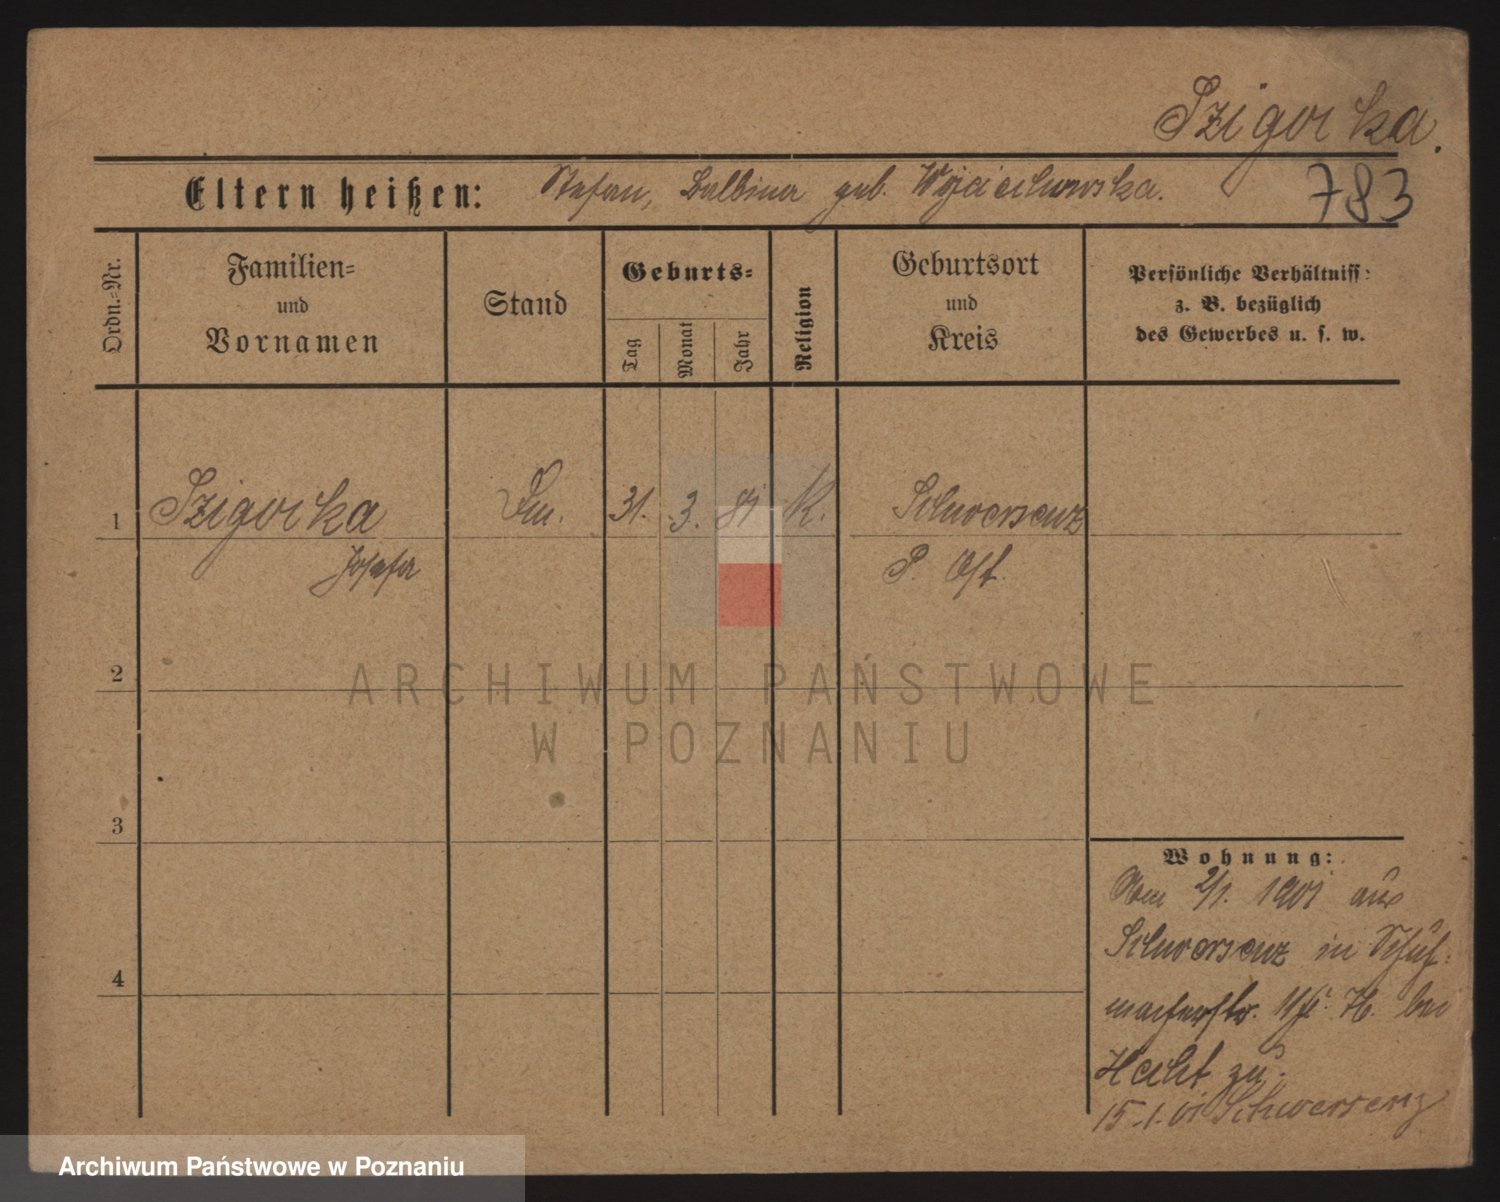 Szigorska.
Eltern heißen: Stefan, Balbina geb. Wojciechowska.
783
Ordn.-Nr.
Familien-
und
Vornamen
Stand
Geburts-
Tag
Monat
Jahr
Religion
Geburtsort
und
Kreis
Persönliche Verhältniss:
z. B. bezüglich
des Gewerbes u. s. w.
1
31.
3.
81
K.
Schwersenz
Josefa
P. Ost.
ARCHIWUM PAŃSTWOWE
W POZNANIU
2
3
4
Wohnung:
Vom 2/1. 1901 aus
Schwersenz in Schuh-
macherstr. H. bei
Hecht zu.
15.1.01 Schwersenz
Archiwum Państwowe w Poznaniu